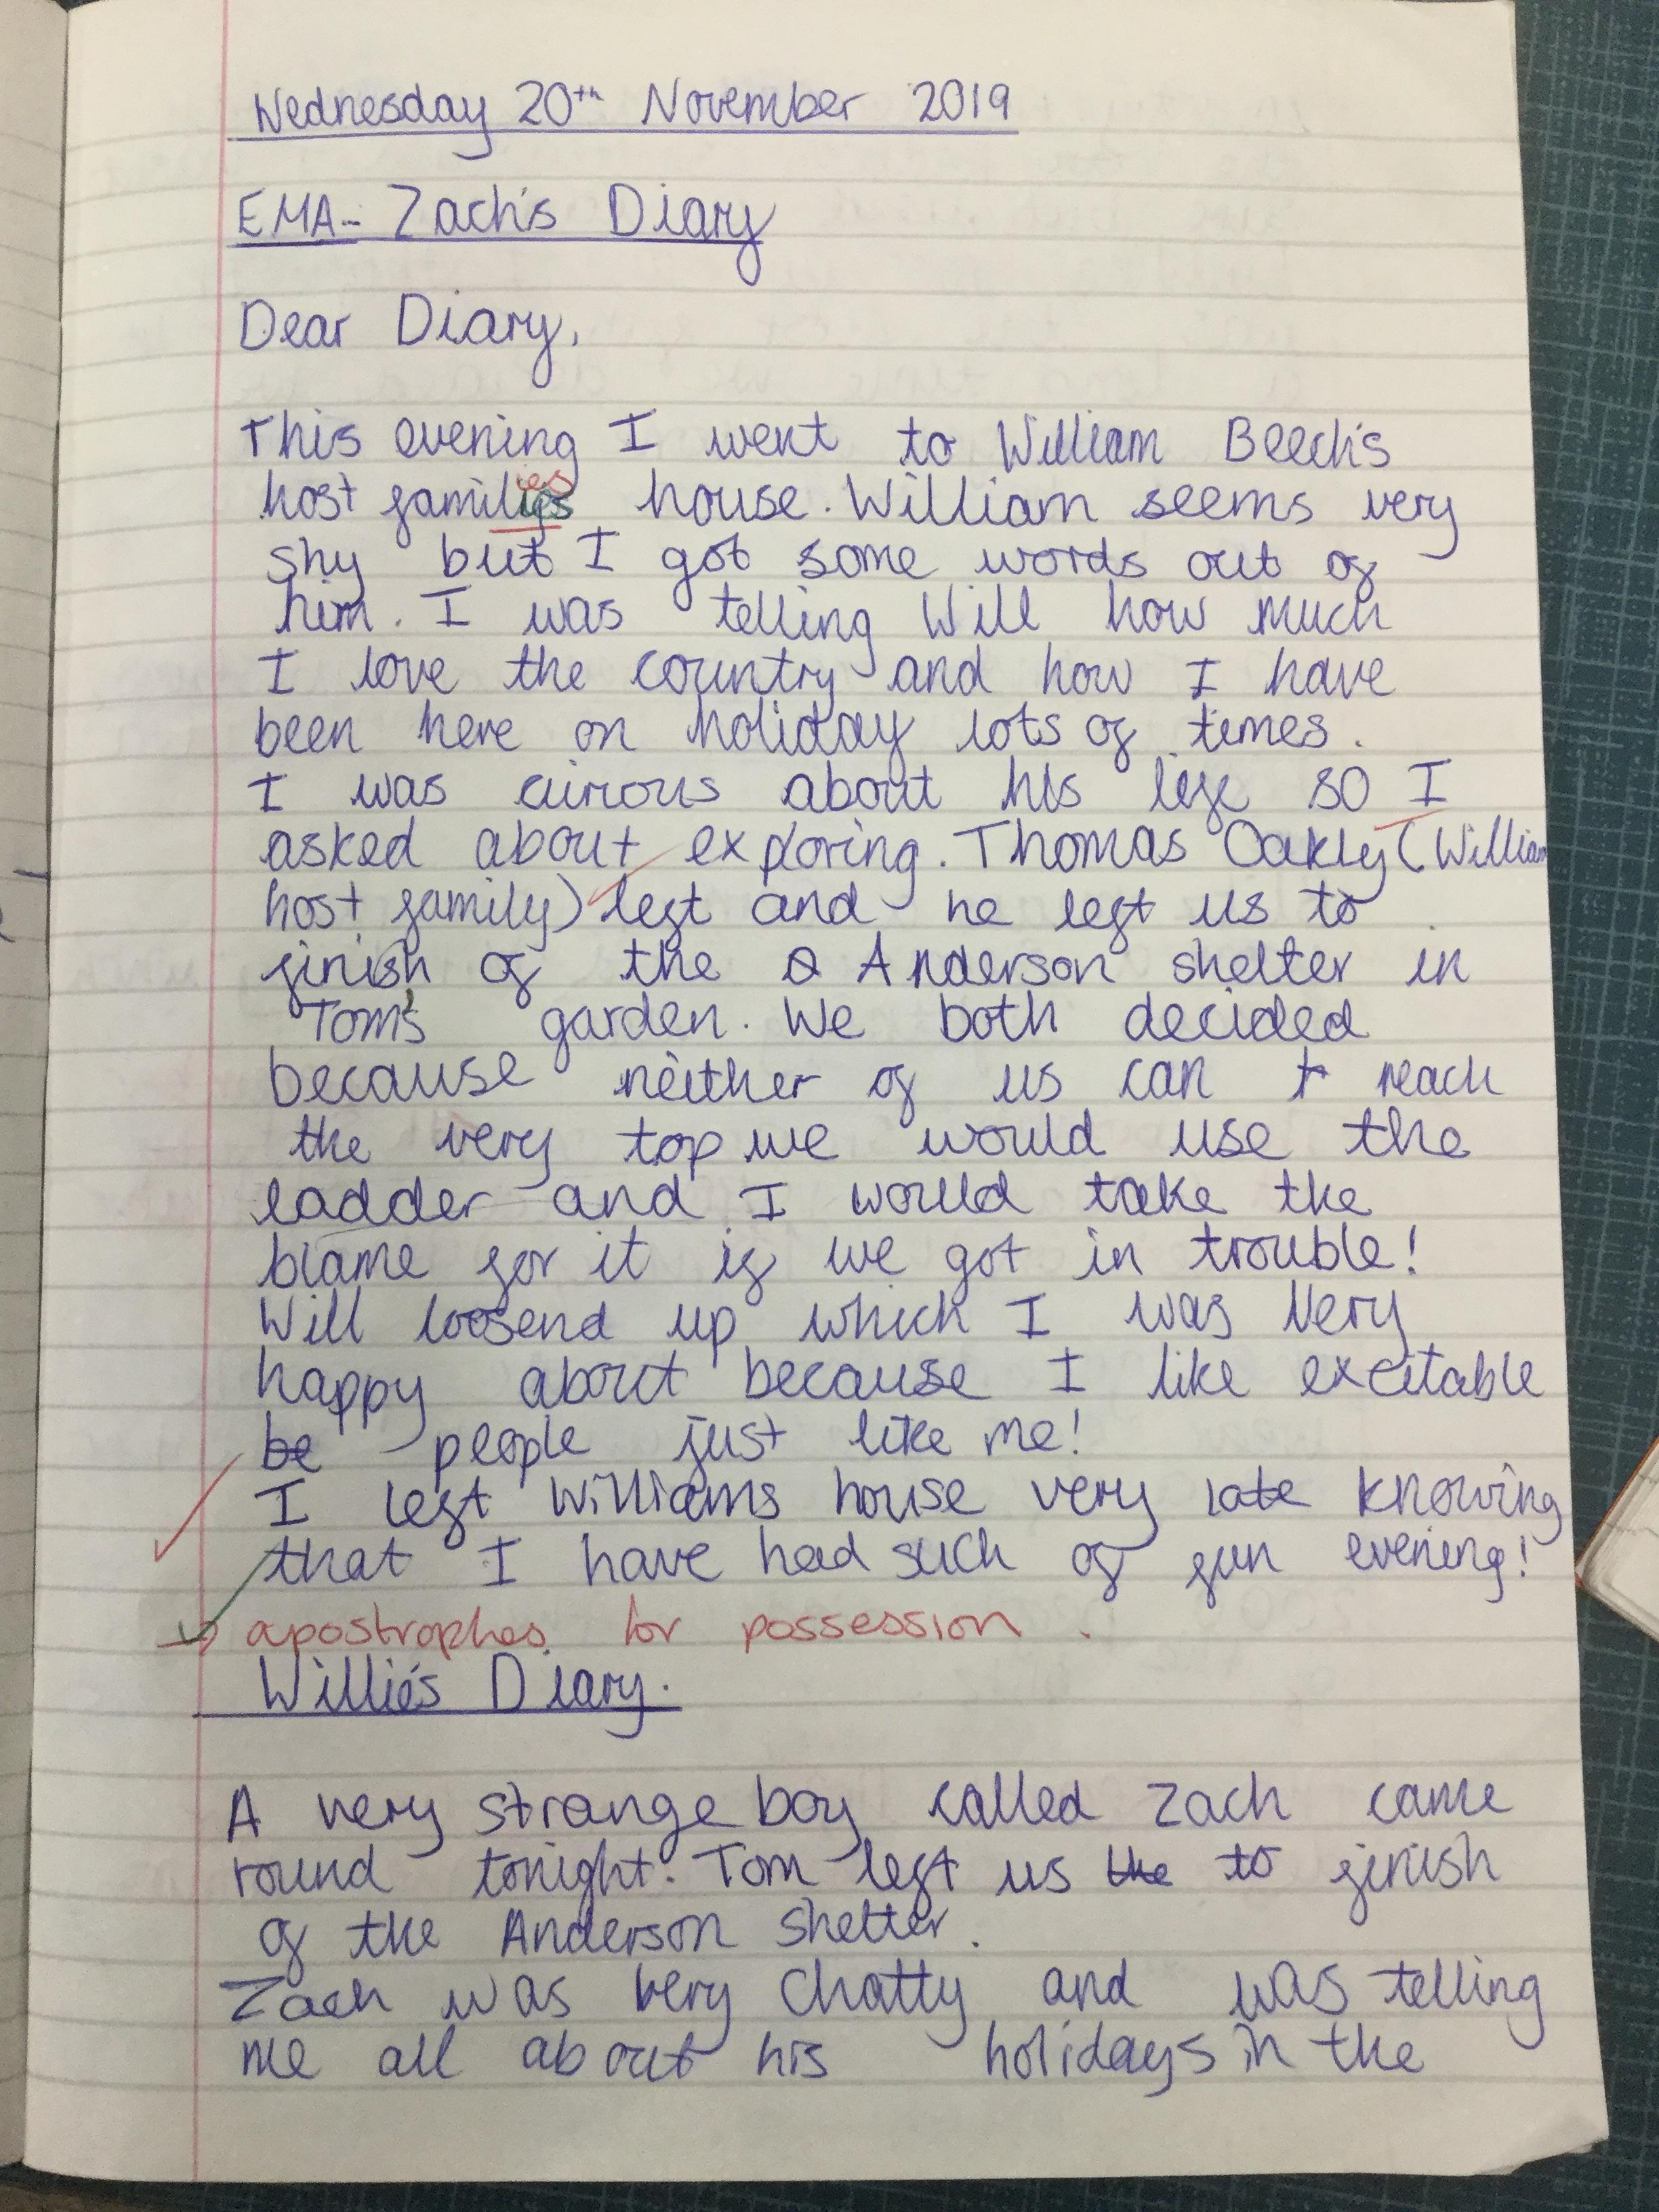 Wednesday 20th November 2019
EMA- Zach's Diary
Dear Diary,
This evening I went to William Beech's
ies
host families house. William seems very
shy but I got some words out of
him. I was telling Will how much
I love the country and how I have
been here on holiday lots of times.
I was curious about his life so I
asked about exploring. Thomas Oakly (William
host family) left and he left us to
finish of the Anderson shelter in
Tom's garden. We both decided
because neither of us can t reach
the very top we would use the
ladder and I would take the
blame for it if we got in trouble!
Will loosend up which I was very
happy about because I like excitable
be people just like me!
I left Williams house very late knowing
that I have had such of fun evening!
apostrophes for possession.
Willie's Diary.
A very strange boy called Zach came
round tonight. Tom left us the to finish
of the Anderson shelter.
Zach was very chatty and was telling
me all about his holidays in the